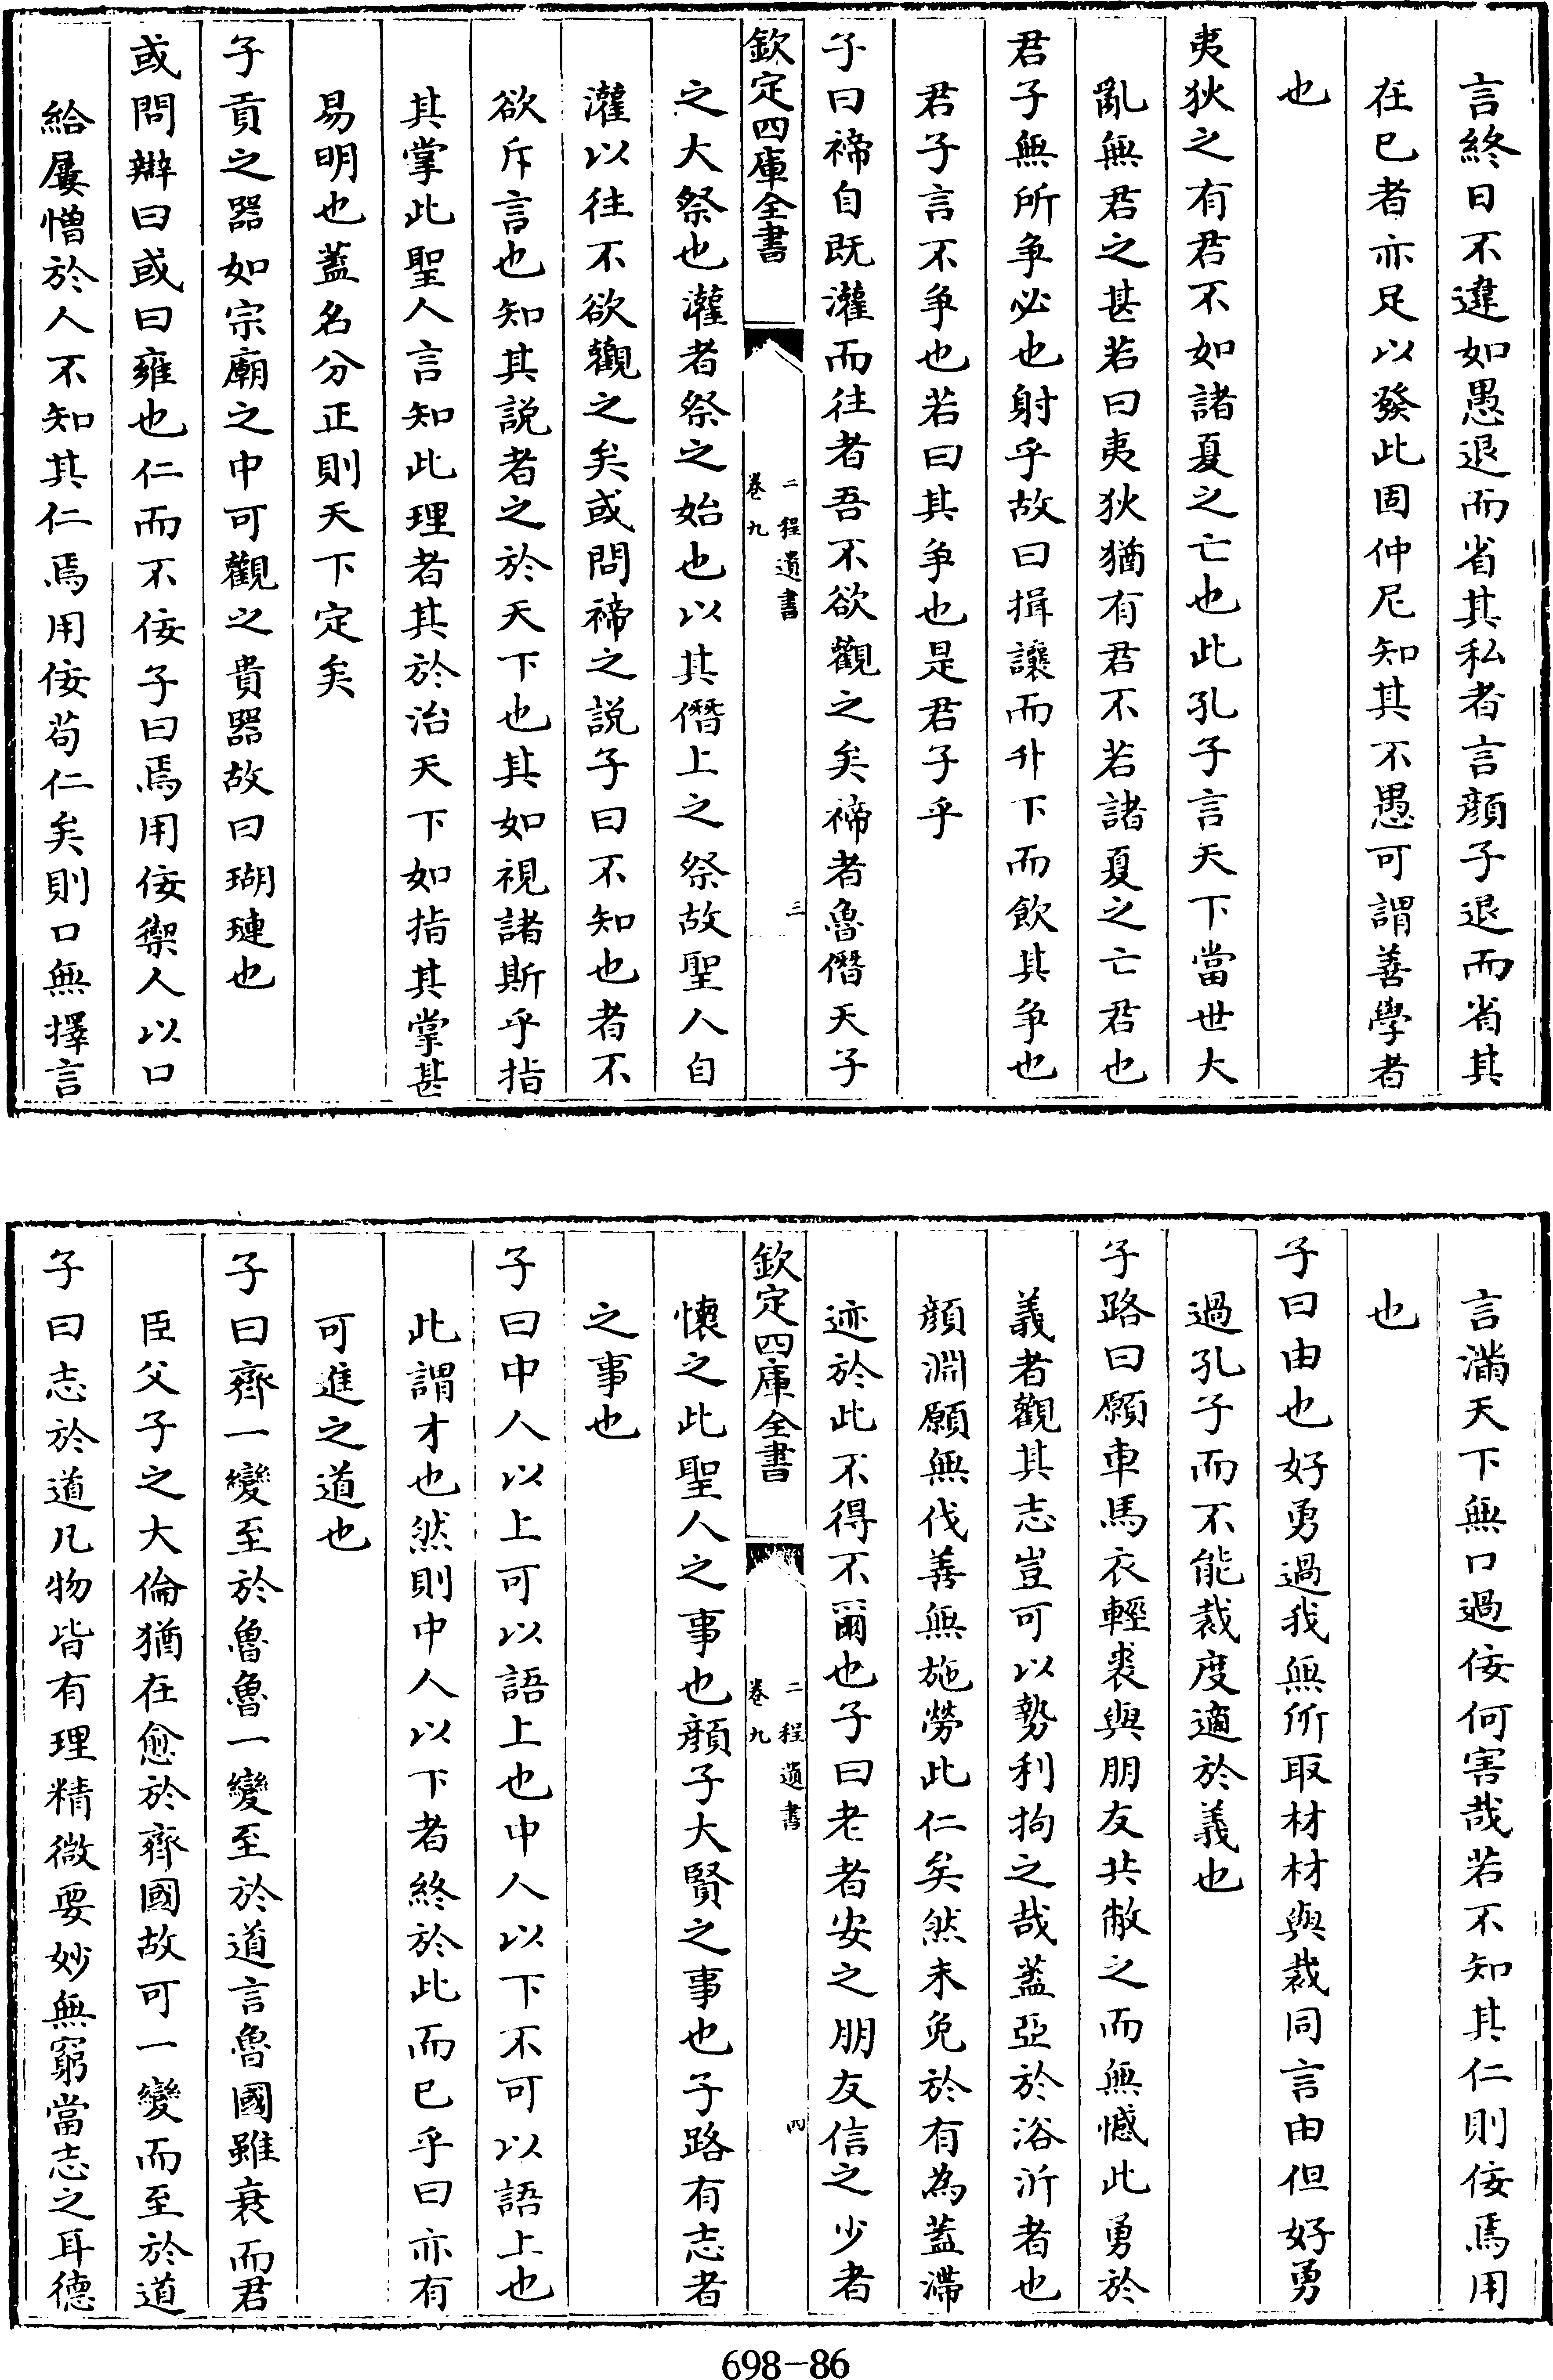 言終日不違如愚退而省其私者言顔子退而省其
在已者亦足以發此固仲尼知其不愚可謂善學者
也
夷狄之有君不如諸夏之亡也此孔子言天下當世大
亂無君之甚若曰夷狄猶有君不若諸夏之亡君也
君子無所爭必也射乎故曰揖讓而升下而飲其爭也
君子言不爭也若曰其爭也是君子乎
子曰禘自既灌而往者吾不欲觀之矣禘者魯僭天子
欽定四庫全書
二程遺書
卷九
三
之大祭也灌者祭之始也以其僭上之祭故聖人自
灌以往不欲觀之矣或問禘之説子曰不知也者不
欲斥言也知其説者之於天下也其如視諸斯乎指
其掌此聖人言知此理者其於治天下如指其掌甚
易明也蓋名分正則天下定矣
子貢之器如宗廟之中可觀之貴器故曰瑚璉也
或問辯曰或曰雍也仁而不佞子曰焉用佞禦人以口
給屢憎於人不知其仁焉用佞苟仁矣則口無擇言
言滿天下無口過佞何害哉若不知其仁則佞焉用
也
子曰由也好勇過我無所取材材與裁同言由但好勇
過孔子而不能裁度適於義也
子路曰願車馬衣輕裘與朋友共敝之而無憾此勇於
義者觀其志豈可以勢利拘之哉蓋亞於浴沂者也
顔淵願無伐善無施勞此仁矣然未免於有為蓋滯
迹於此不得不爾也子曰老者安之朋友信之少者
欽定四庫全書
二程遺書
卷九
四
懷之此聖人之事也顔子大賢之事也子路有志者
之事也
子曰中人以上可以語上也中人以下不可以語上也
此謂才也然則中人以下者終於此而已乎曰亦有
可進之道也
子曰齊一變至於魯魯一變至於道言魯國雖衰而君
臣父子之大倫猶在愈於齊國故可一變而至於道
子曰志於道凡物皆有理精微要妙無窮當志之耳德
698-86